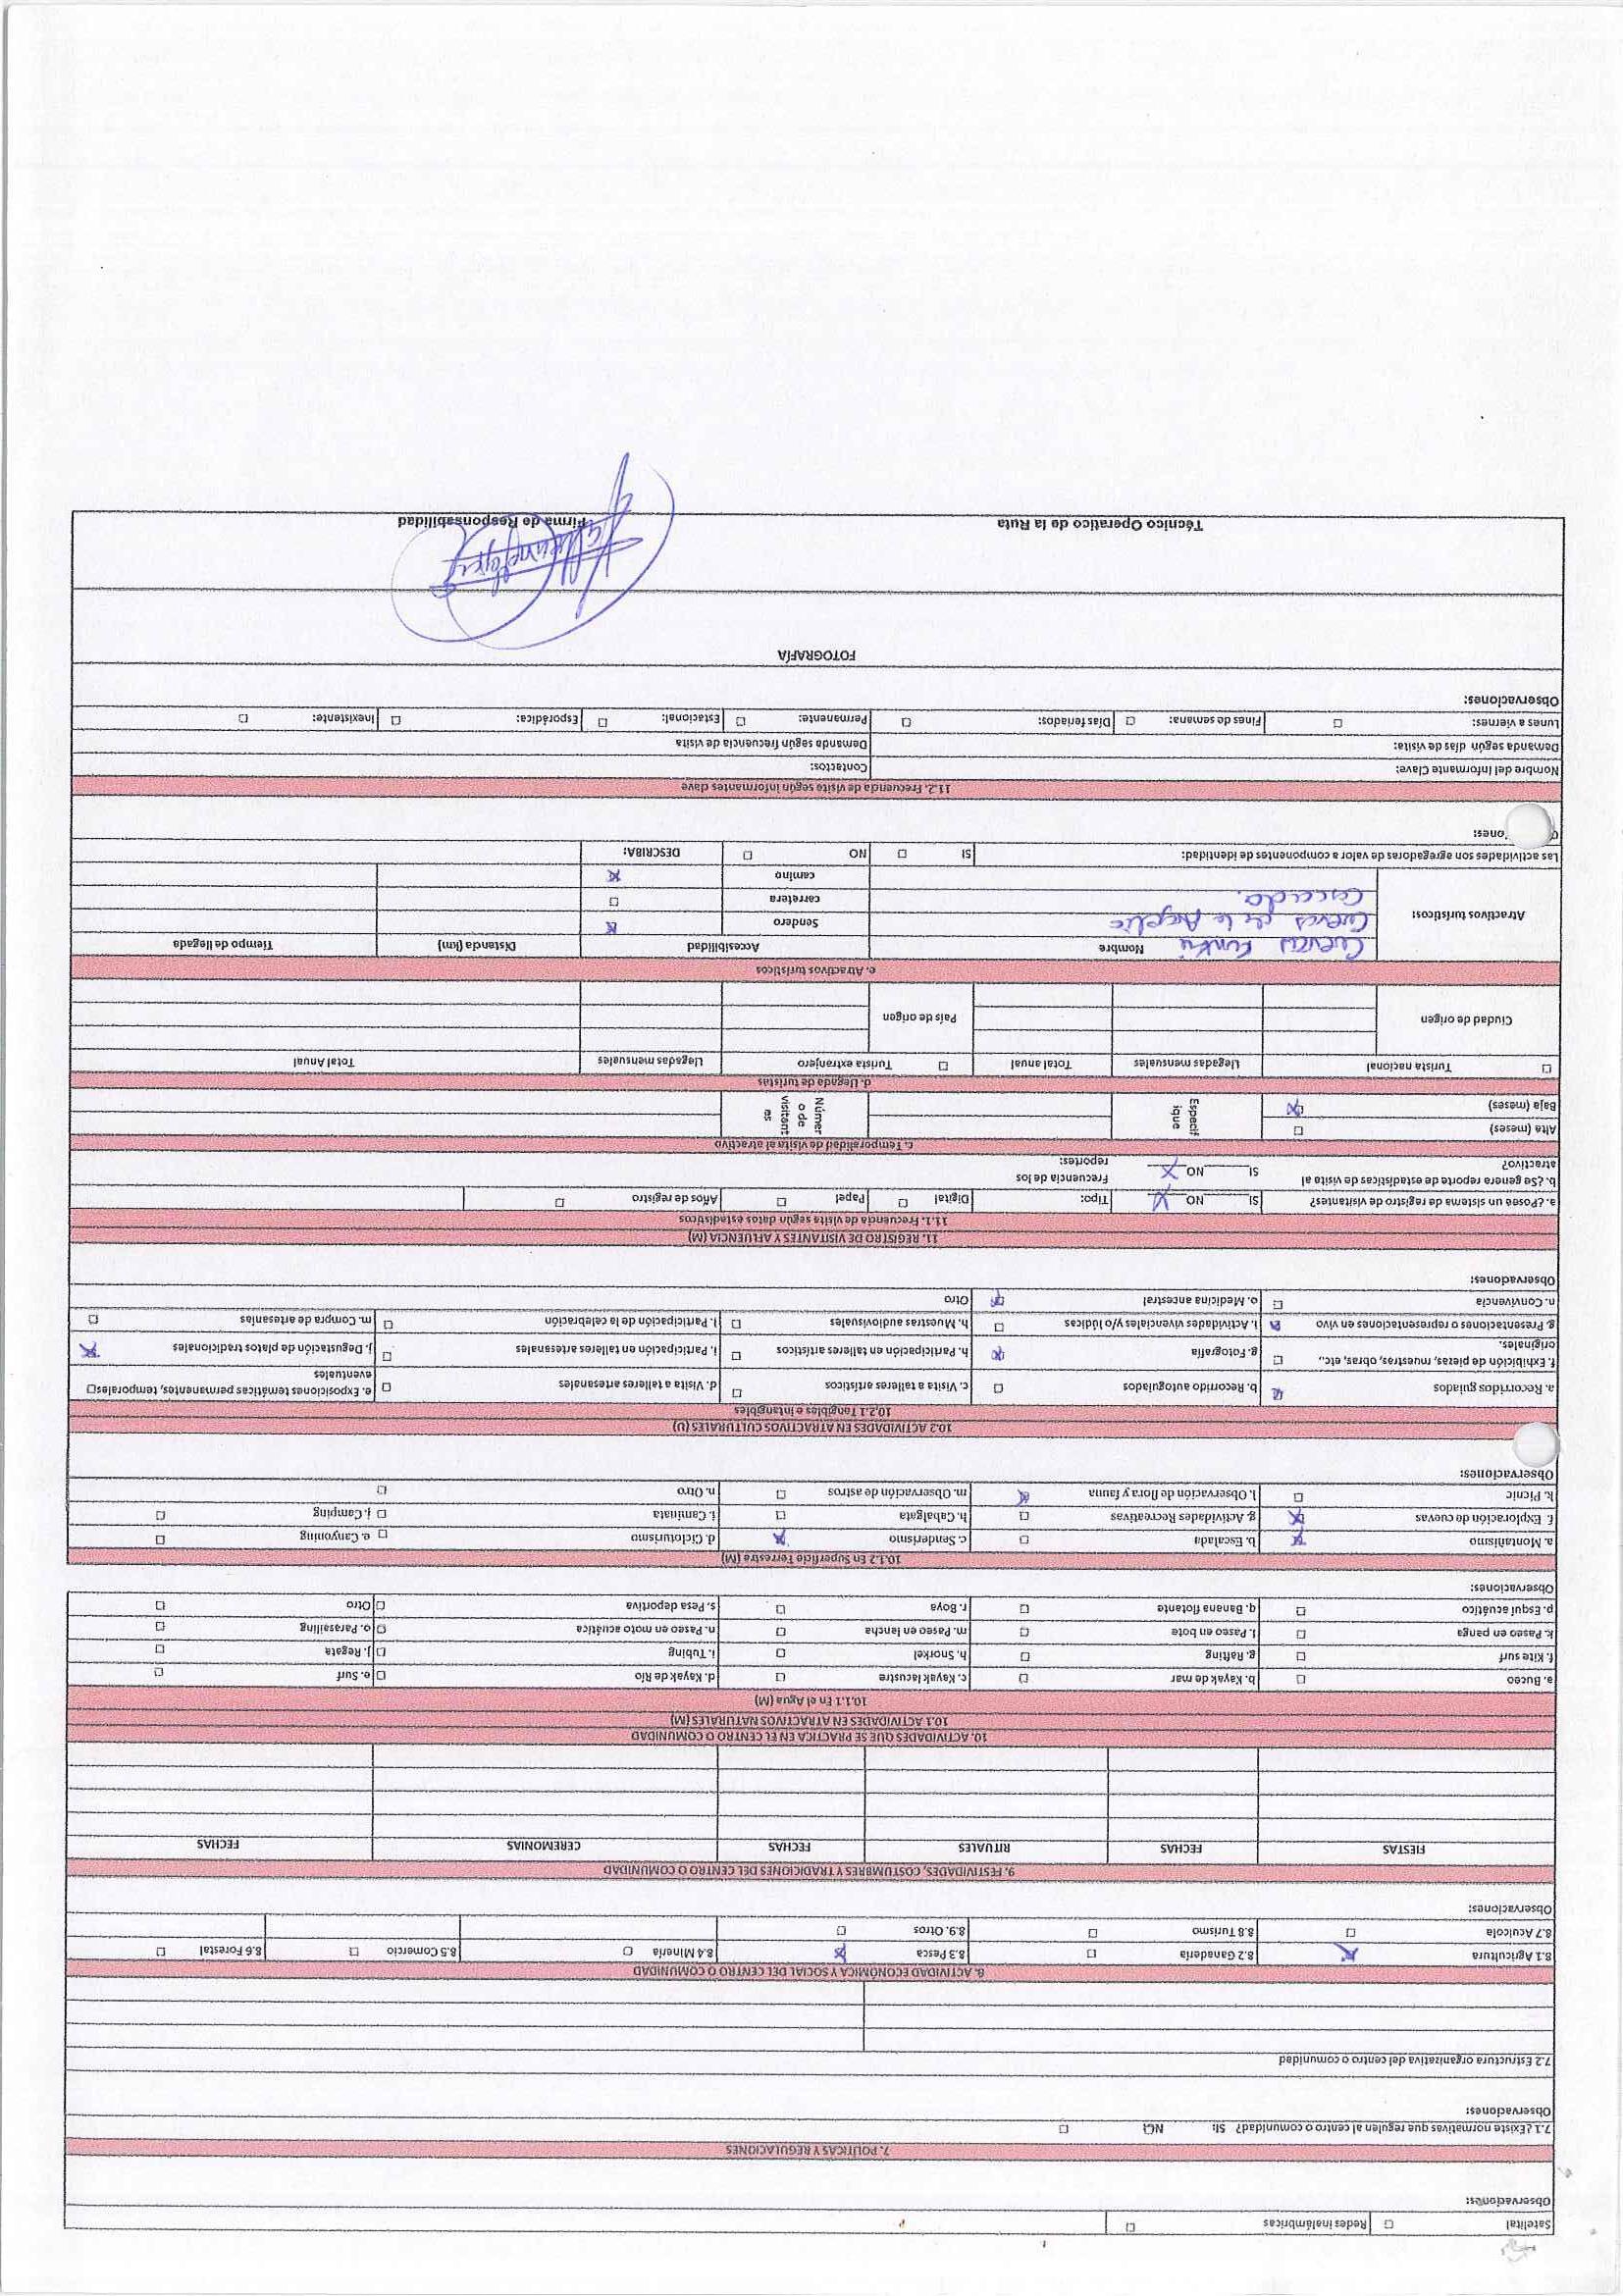 Satelital ☐ Redes inalámbricas ☐
Observaciones:
7. POLITICAS Y REGULACIONES
7.1 ¿Existe normativas que regulen al centro o comunidad? SI: NO ☐
Observaciones:
7.2 Estructura organizativa del centro o comunidad
8. ACTIVIDAD ECONÓMICA Y SOCIAL DEL CENTRO O COMUNIDAD
8.1 Agricultura ☒ 8.2 Ganadería ☐ 8.3 Pesca ☒ 8.4 Minería ☐ 8.5 Comercio ☐ 8.6 Forestal ☐
8.7 Acuícola ☐ 8.8 Turismo ☐ 8.9. Otros ☐
Observaciones:
9. FESTIVIDADES, COSTUMBRES Y TRADICIONES DEL CENTRO O COMUNIDAD
FIESTAS FECHAS RITUALES FECHAS CEREMONIAS FECHAS
10. ACTIVIDADES QUE SE PRACTICA EN EL CENTRO O COMUNIDAD
10.1 ACTIVIDADES EN ATRACTIVOS NATURALES (M)
10.1.1 En el Agua (M)
a. Buceo ☐ b. Kayak de mar ☐ c. Kayak lacustre ☐ d. Kayak de Río ☐ e. Surf ☐
f. Kite surf ☐ g. Rafting ☐ h. Snorkel ☐ i. Tubing ☐ j. Regata ☐
k. Paseo en panga ☐ l. Paseo en bote ☐ m. Paseo en lancha ☐ n. Paseo en moto acuática ☐ o. Parasailing ☐
p. Esquí acuático ☐ q. Banana flotante ☐ r. Boya ☐ s. Pesa deportiva ☐ Otro ☐
Observaciones:
10.1.2 En Superficie Terrestra (M)
a. Montañismo ☒ b. Escalada ☐ c. Senderismo ☒ d. Cicloturismo ☐ e. Canyoning ☐
f. Exploración de cuevas ☒ g. Actividades Recreativas ☐ h. Cabalgata ☐ i. Caminata ☐ j. Camping ☐
k. Picnic ☐ l. Observación de flora y fauna ☒ m. Observación de astros ☐ n. Otro ☐
Observaciones:
10.2 ACTIVIDADES EN ATRACTIVOS CULTURALES (U)
10.2.1 Tangibles e intangibles
a. Recorridos guiados ☒ b. Recorrido autoguiados ☐ c. Visita a talleres artísticos ☐ d. Visita a talleres artesanales ☐ e. Exposiciones temáticas permanentes, temporales ☐
eventuales
f. Exhibición de piezas, muestras, obras, etc.,
originales. ☐ g. Fotografía ☒ h. Participación en talleres artísticos ☐ i. Participación en talleres artesnales ☐ j. Degustación de platos tradicionales ☒
g. Presentaciones o representaciones en vivo ☒ i. Actividades vivenciales y/o lúdicas ☐ h. Muestras audiovisuales ☐ l. Participación de la celebración ☐ m. Compra de artesanías ☐
n. Convivencia ☐ o. Medicina ancestral ☒ Otro
Observaciones:
11. REGISTRO DE VISITANTES Y AFLUENCIA (M)
11.1. Frecuencia de visita según datos estadísticos
a. ¿Posea un sistema de registro de visitantes? SI____ NO X Tipo: Digital ☐ Papel ☐ Años de registro ☐
b. ¿Se genera reporte de estadísticas de visita al
atractivo? SI____ NO X Frecuencia de los
reportes:
c. Temporalidad de visita al atractivo
Alta (meses) ☐ Especif
ique Númer
o de
visitant
es
Baja (meses) ☒
d. Llegada de turistas
☐ Turista nacional Llegadas mensuales Total anual ☐ Turista extranjero Llegadas mensuales Total Anual
Ciudad de origen País de origen
e. Atractivos turísticos
Atractivos turísticos: Nombre Accesibilidad Distancia (km) Tiempo de llegada
Cuevas
Cuevas de la Sendero ☒
Cascada. carretera ☐
camino ☒
Las actividades son agregadoras de valor a componentes de identidad: SI ☐ NO ☐ DESCRIBA:
11.2. Frecuencia de visita según informantes clave
Nombre del Informante Clave: Contactos:
Demanda según días de visita: Demanda según frecuencia de visita
Lunes a viernes: ☐ Fines de semana: ☐ Días feriados: ☐ Permanente: ☐ Estacional: ☐ Esporádica: ☐ Inexistente: ☐
Observaciones:
FOTOGRAFÍA
Técnico Operatico de la Ruta Firma de Responsabilidad